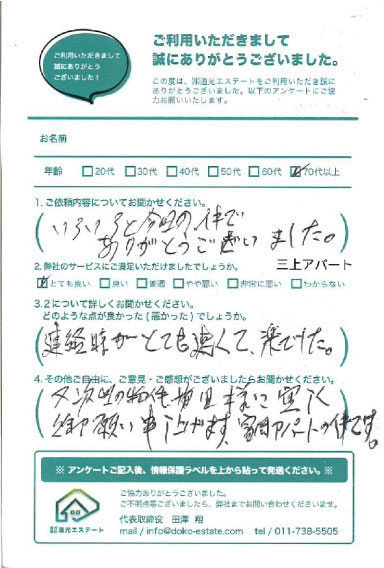 ご利用いただきまして
誠にありがとう
ございました!
ご利用いただきまして
誠にありがとうございました。
この度は、㈱道光エステートをご利用いただき誠に
ありがとうございました。以下のアンケートにご協
力お願いいたします。
お名前
年齢 □20代 □30代 □40代 □50代 □60代 ☑70代以上
1.ご依頼内容についてお聞かせください。
いろいろと今回の件で
ありがとうございました。
2.弊社のサービスにご満足いただけましたでしょうか。 三上アパート
☑とても良い □良い □普通 □やや悪い □非常に悪い □わからない
3.2について詳しくお聞かせください。
どのような点が良かった(悪かった)でしょうか。
連絡時がとても速くて、楽でした。
4.その他ご自由に、ご意見・ご感想がございましたらお聞かせください。
又次の物件
御願い申し上げます、アパートの件です。
※ アンケートご記入後、情報保護ラベルを上から貼って発送ください。※
株式会社 道光エステート
ご協力ありがとうございました。
ご不明点等ございましたら、弊社までお問い合わせくださいませ。
代表取締役 田澤 翔
mail / info@doko-estate.com tel / 011-738-5505